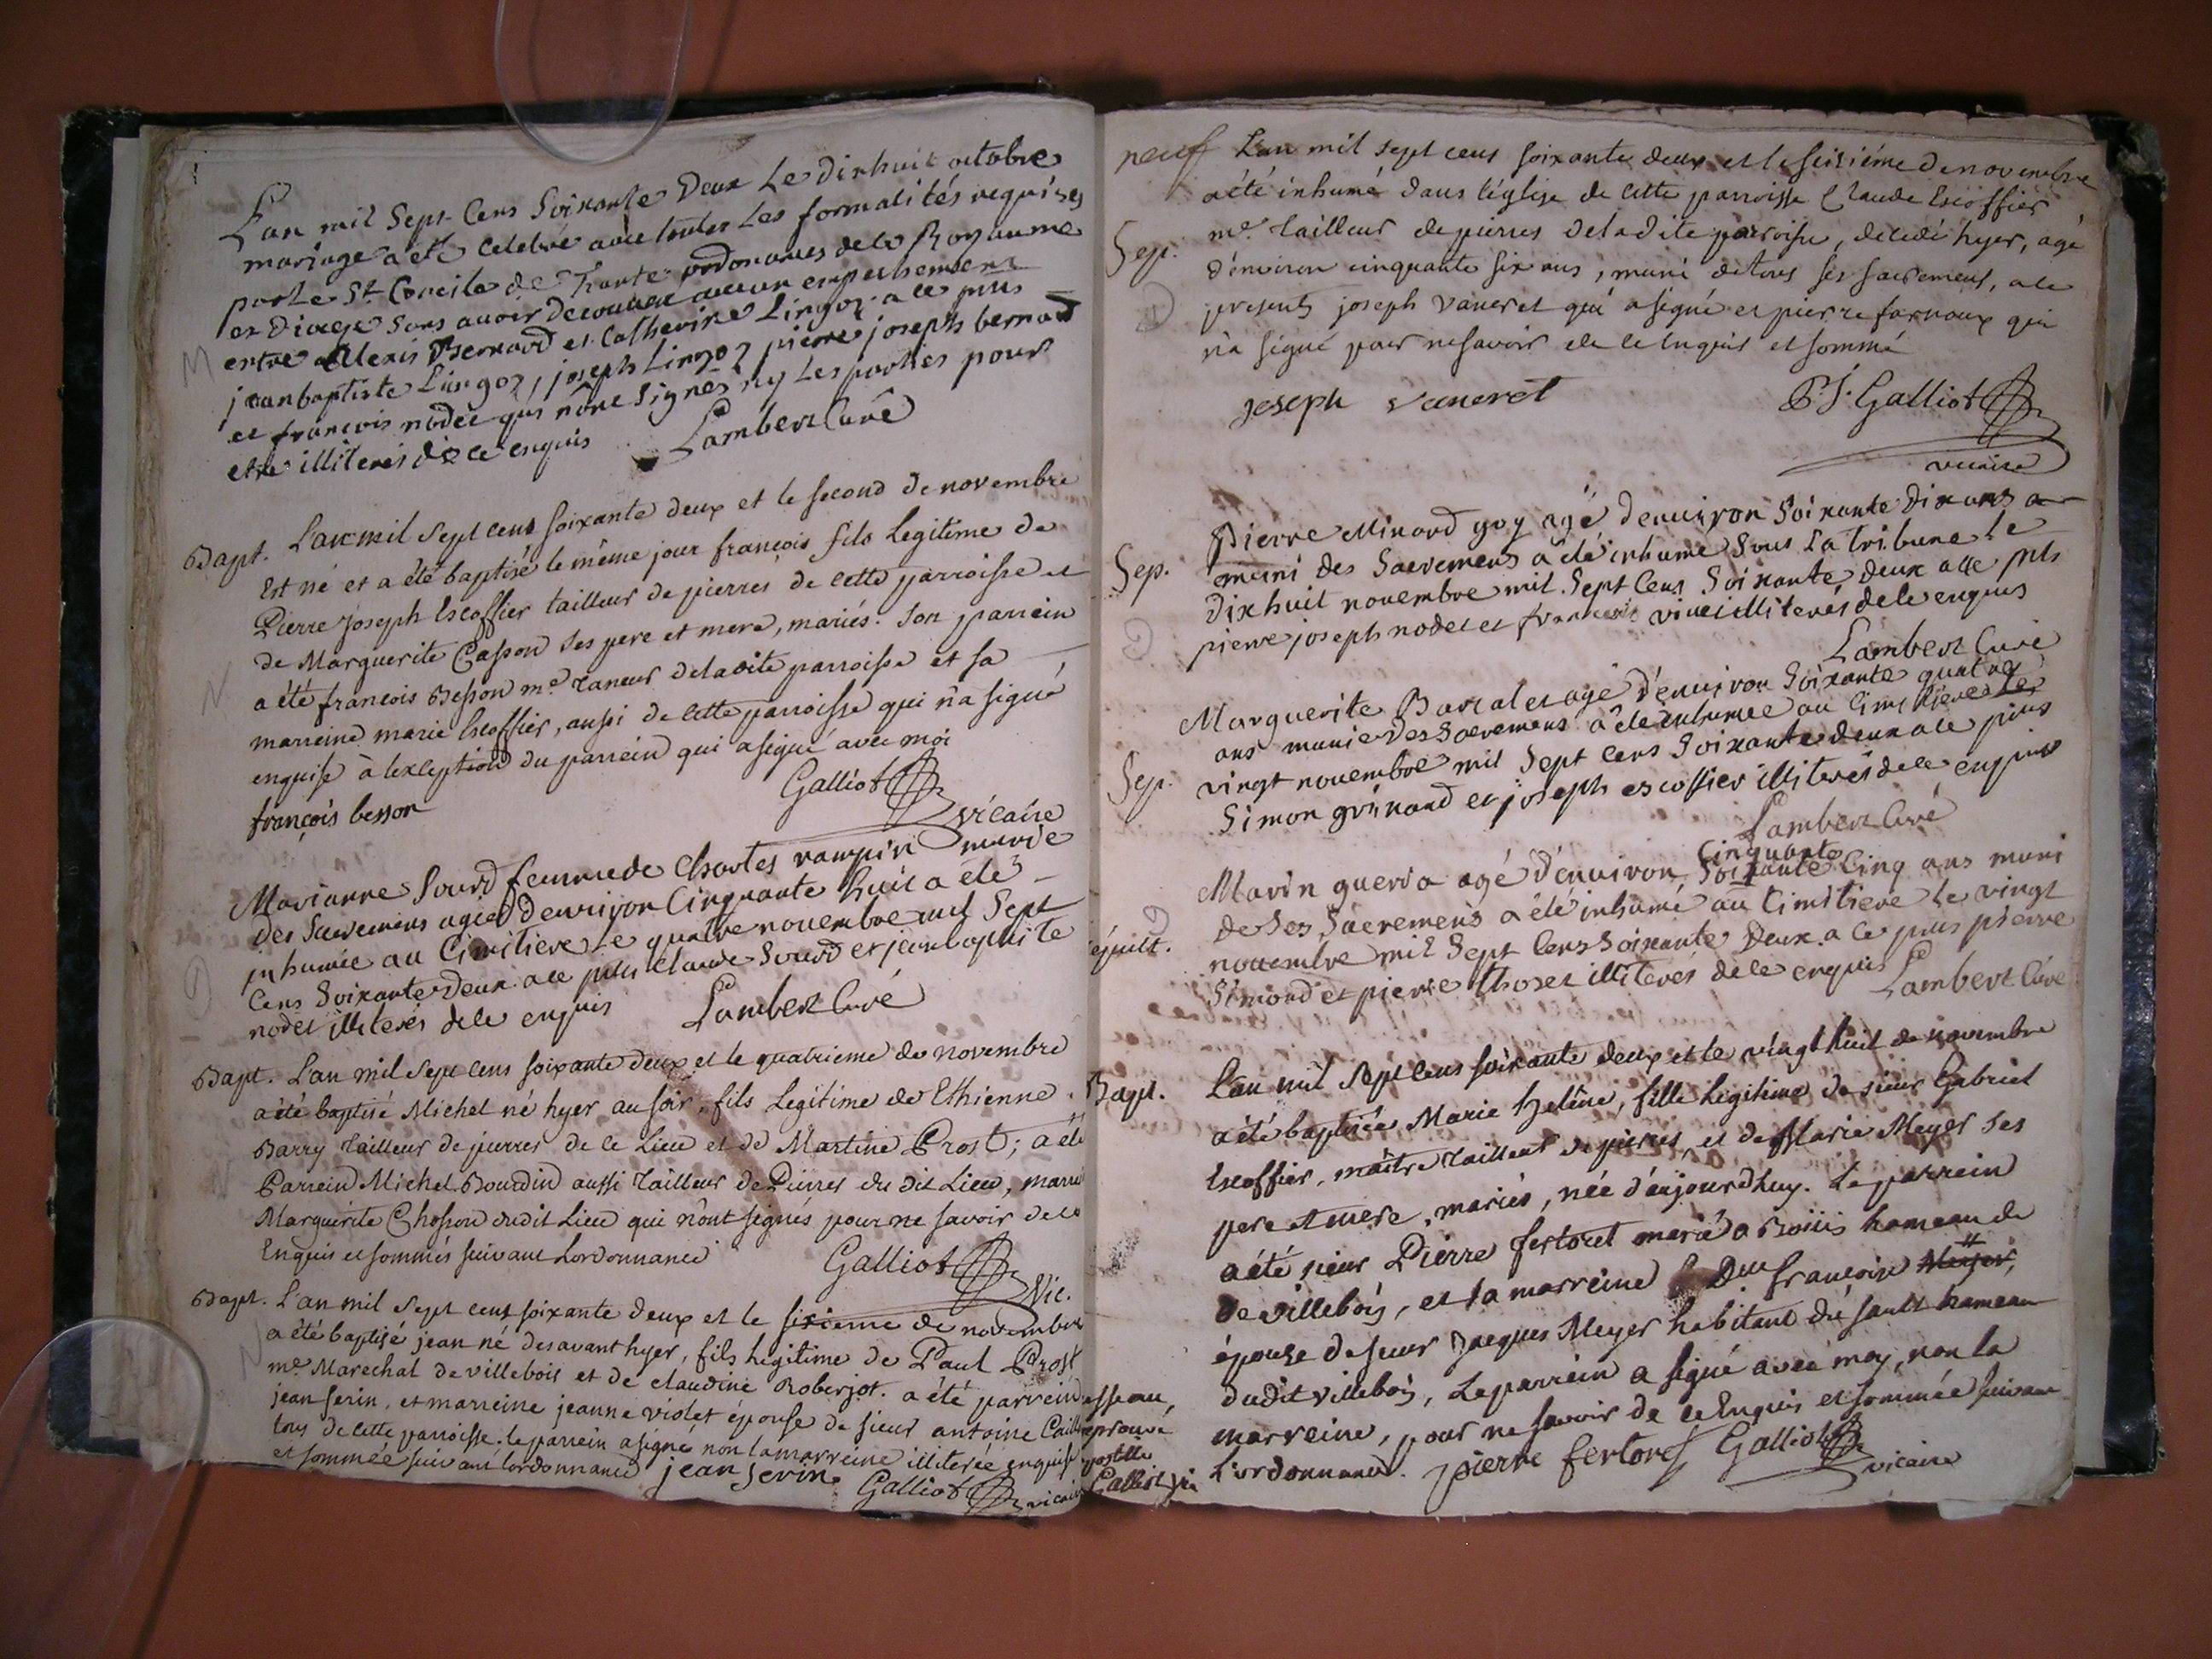 L'an mil Sept Cens Soixante Deux Le Dixhuit octobre
mariage a été Celebré avec toutes Les formalités requises
par le St Concile de Trante ordonances de le Royaume
et Diocese sans avoir decouvert aucun empechement
entre Alexis Bernard et Catherine Lingoz a ce pnts
jeanbaptiste Lingoz, joseph Lingoz pierre joseph bernard
et francois nodet qui nont Signés ny Les parties pour
etre illiterés de ce enquis Lambert Curé
Bapt. L'an mil sept cens soixante deux et le second de novembre
Est né et a été baptisé le même jour françois fils Legitime de
Pierre joseph Escoffier tailleur de pierres de cette parroisse et
de Marguerite Casson ses pere et mere, mariés. Son parrein
a été francois Besson me Taneur de ladite parroisse et sa
marreine marie Escoffier, aussi de cette parroisse qui n'a signé
enquise à lexception du parrein qui a signé avec moi
françois besson Galliot vicaire
Marianne Sourd femme de Charles rampin munie
des Sacremens agée d'environ Cinquante huit a été
inhumée au Cimitiere Le quatre novembre mil Sept
Cens Soixante Deux a ce pnts Claude Sourd et jeanbaptiste
nodet illiterés de ce enquis Lambert Curé
Bapt. L'an mil sept cens soixante deux et le quatrieme de novembre
a été baptisé Michel né hyer au soir, fils Legitime de Ethienne
Barry Tailleur de pierres de ce Lieu et de Martine Prost; a été
Parrein Michel Bourdin aussi Tailleur de Pierres du dit Lieu, marre
Marguerite Chosson dudit Lieu qui n'ont signés pour ne savoir de ce
Enquis et sommés suivant Lordonnance Galliot Vic.
Bapt. L'an mil sept cens soixante deux et le sixieme de novembre
a été baptisé jean né desavant hyer, fils legitime de Paul Prost
me Marechal de villebois et de claudine Roberjot. a été parrein
jean serin, et marreine jeanne violet épouse de sieur antoine Caill
tous de cette parroisse. le parrein a signé non la marreine illiterée enquise
et sommée suivant lordonnance jean serin Galliot vicaire
neuf L'an mil sept cens soixante deux et le seisiéme de novembre
a été inhumé dans l'église de cette parroisse Claude Escoffier
Sep. me Tailleur de pierres de ladite parroisse, décedé hyer, agé
d'environ cinquante six ans, muni de tous ses sacremens, a ce
presents joseph Vaneret qui a signé et pierre farnoux qui
n'a signé pour ne savoir de ce Enquis et sommé
joseph vaneret P.J. Galliot
vicaire
Pierre Minard goy agé denviron Soixante Dix ans
Sep. muni des Sacremens a été inhumé Sous La tribune Le
Dixhuit novembre mil Sept Cens Soixante deux a ce pnts
pierre joseph nodet et francois illiterés de ce enquis
Lambert Curé
Marguerite Barcalet agé d'environ Soixante quatre
ans munie des Sacremens a été inhumée au Cimitiere Le
Sep. vingt novembre mil Sept Cens Soixante deux a ce pnts
Simon grinand et joseph escoffier illiterés de ce enquis
Lambert Curé
Cinquante
Marin guerra agé d'environ Soixante Cinq ans muni
de Ses Sacremens a été inhumé au Cimitiere Le vingt
épult. novembre mil Sept Cens Soixante Deux a ce pnts pierre
Simond et pierre Choset illiterés de ce enquis Lambert Curé
Bapt. L'an mil sept cens soixante deux et le vingt huit de novembre
a été baptisée Marie helene, fille legitime de sieur Gabriel
Escoffier, maitre Tailleur de pierres, et de Marie Meyer ses
pere et mere, mariés, née d'aujourdhuy. Le parrein
a été sieur Pierre fertoret marié a Boiiis hameau de
de villebois, et la marreine Dlle francoise Meyer,
épouse de sieur Jacques Meyer habitant du sault hameau
dudit villebois, Le parrein a signé avec moy, non la
marreine, pour ne savoir de ce Enquis et sommée suivant
L'ordonnance. pierre fertoret Galliot vicaire